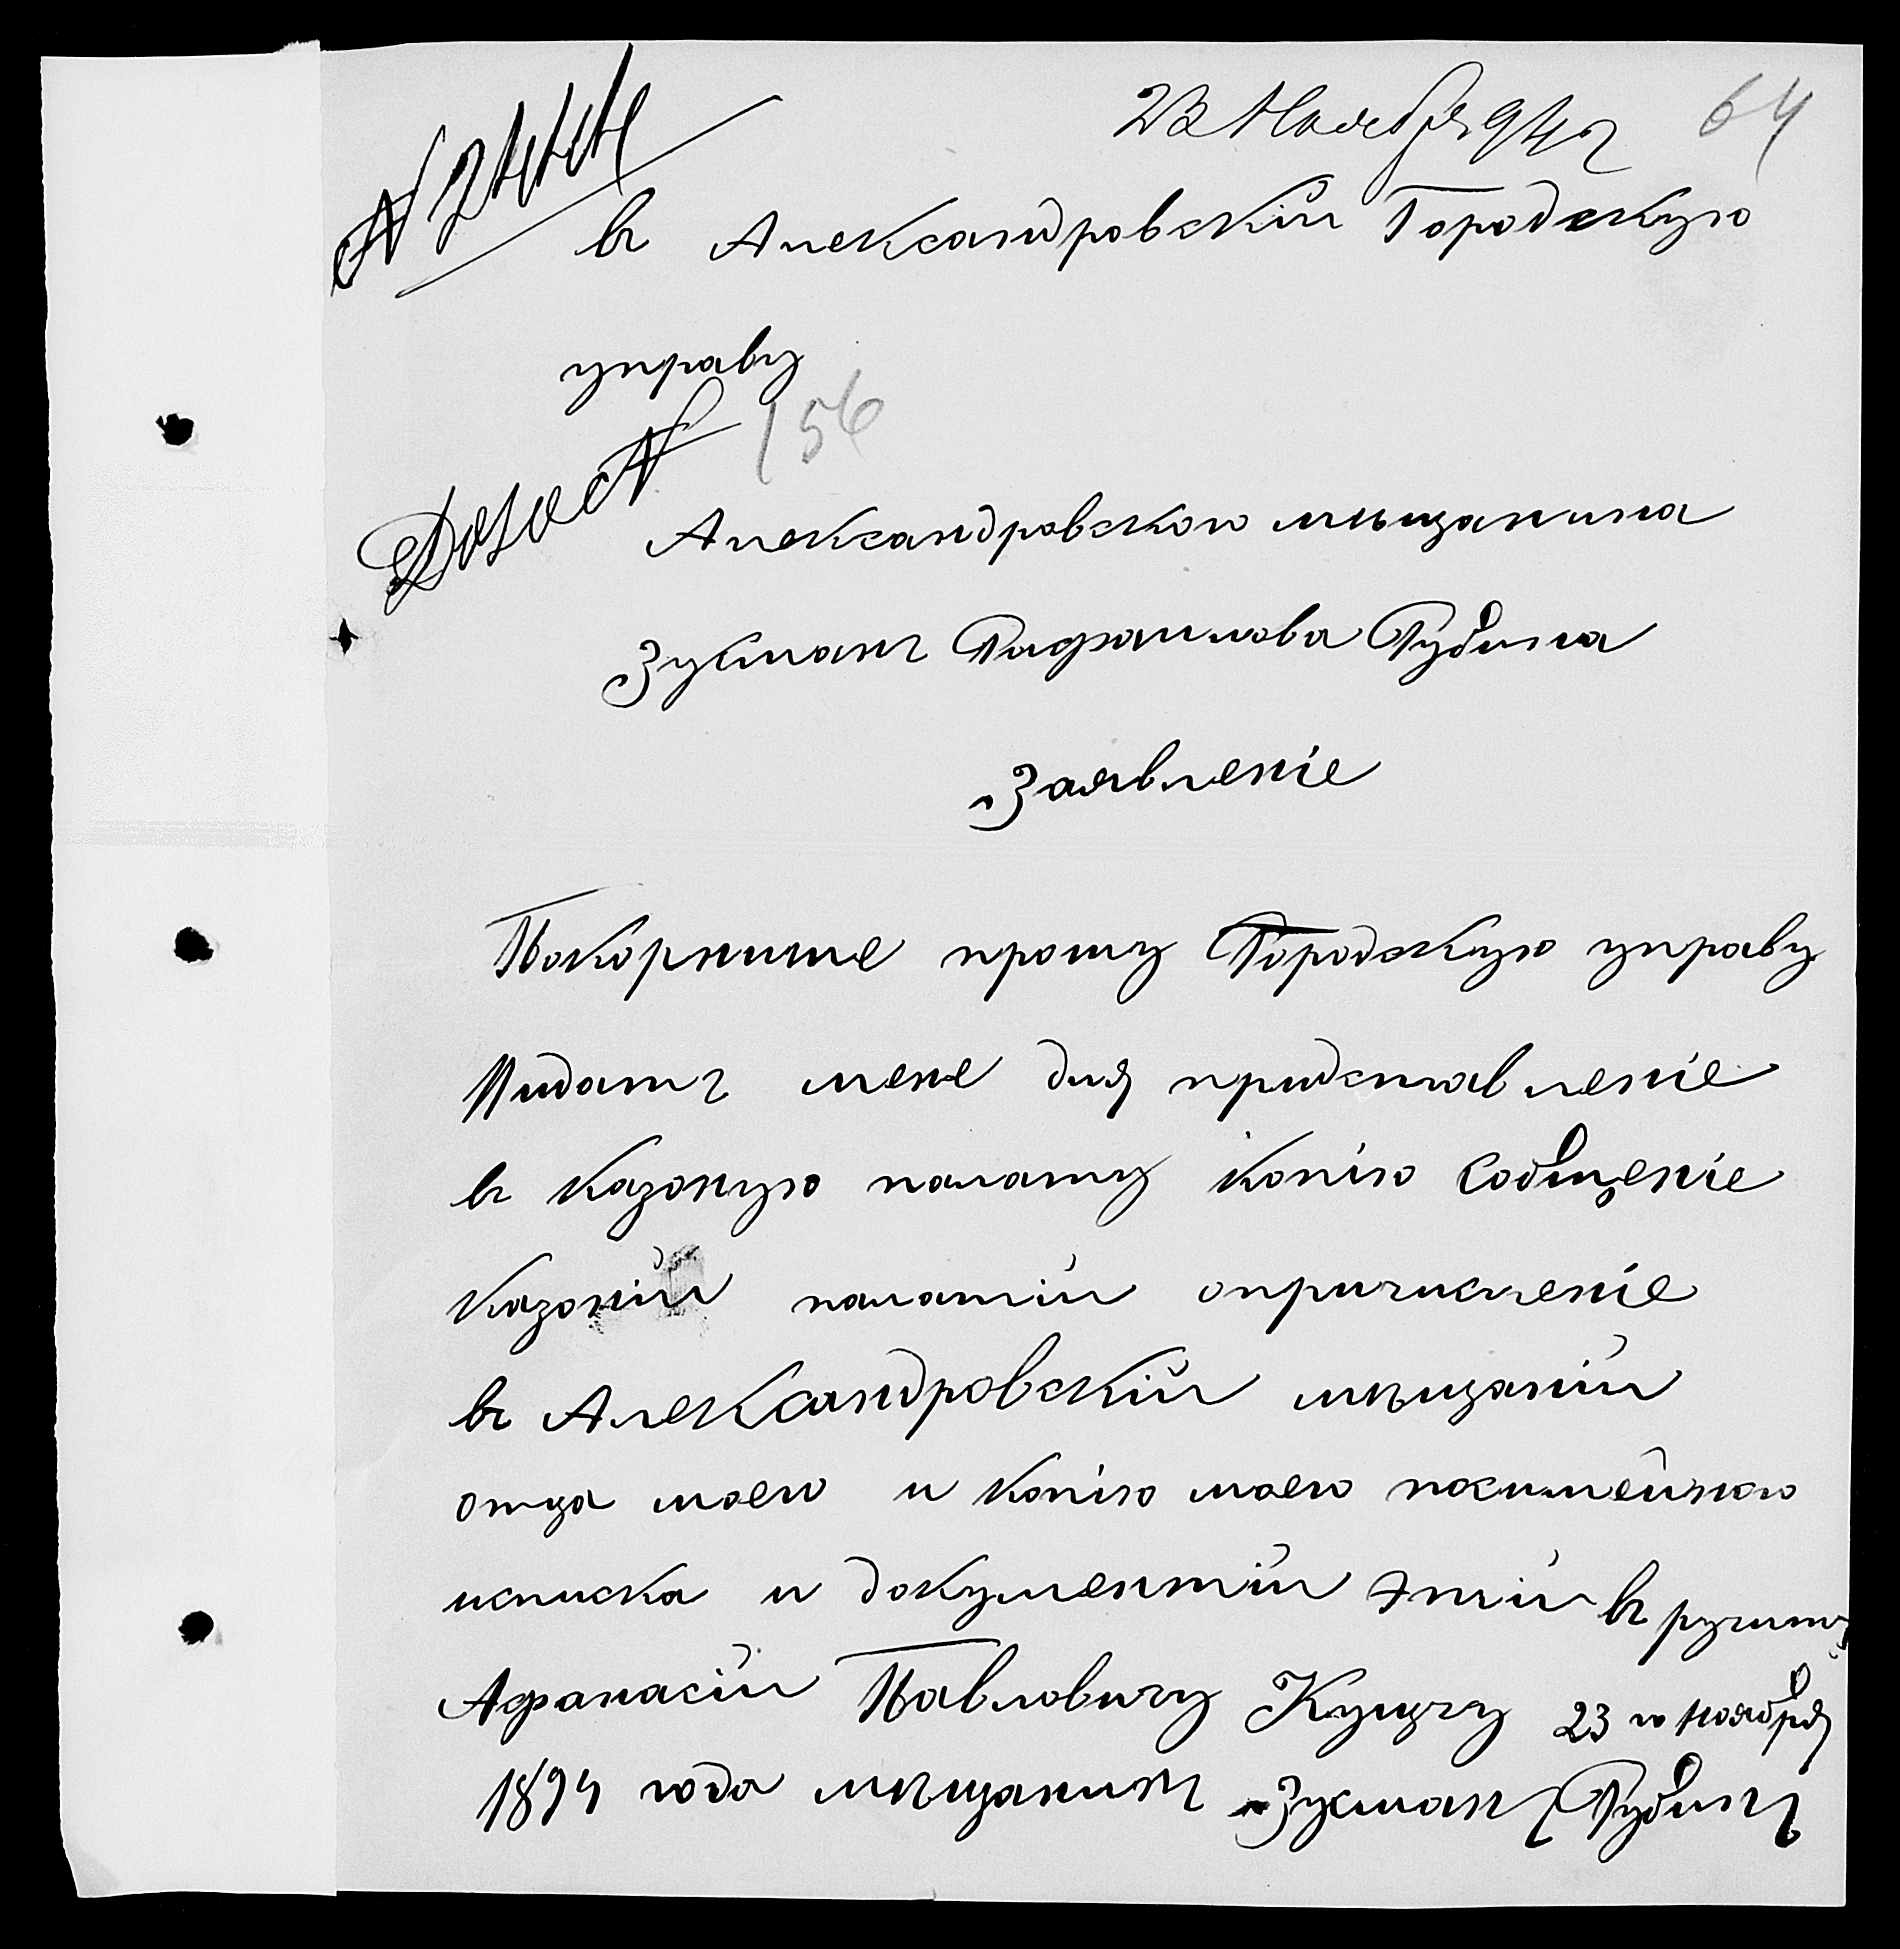 23 Ноября 94 г
64
№ 2444
въ Александровскій Городскую
управу
156
Александровского мѣщанина
Зусманъ Рафаилова Рубина
Заявленіе
Покорнише прошу Городскую управу
Видатъ мене для придставленіе
въ Казоную палату копію Собщеніе
Казоній палатій опричисленіе
въ Александровскій мѣщаній
отца моего и копію моего посимейного
исписка и документій этій въ ручить
Афанасій Павловичу Куцучу 23 го ноября
1894 года мѣщанинъ Зусманъ Рубинъ